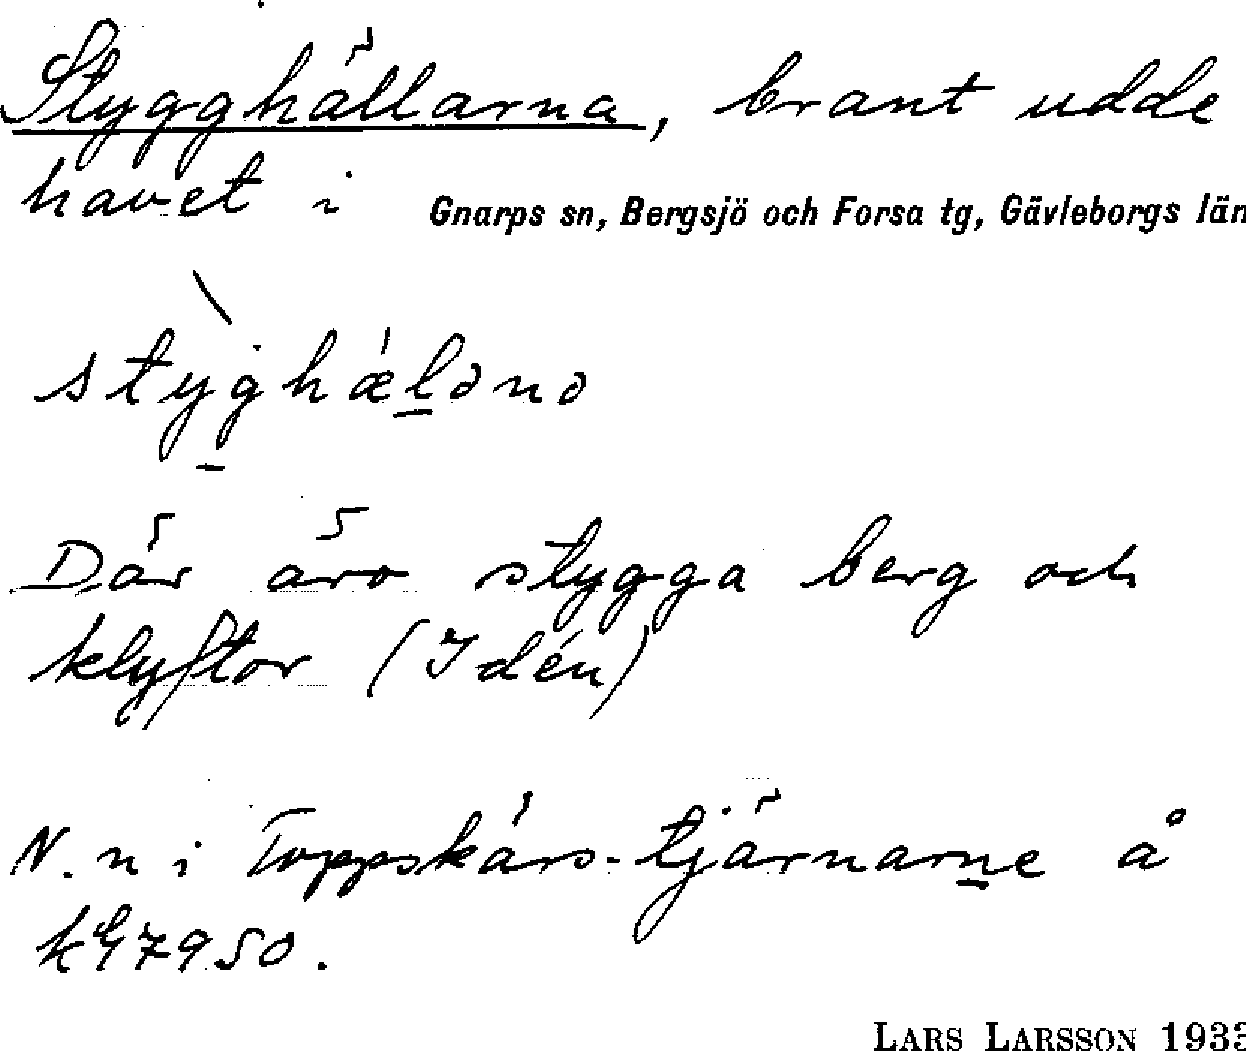 Stygghällarna, brant udde
havet i Gnarps sn, Bergsjö och Forsa tg, Gävleborgs län
Där äro stygga berg och
klyftor (Idén)
N. n i Toppskärs-tjärnarne å
LARS LARSSON 1933